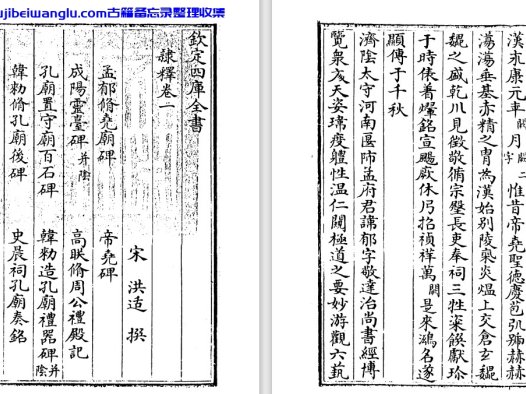 ujibeiwanglu.com古籍备忘录整理收集
欽定四庫全書
隸釋卷一
宋 洪适 撰
孟郁脩堯廟碑 帝堯碑
成陽靈臺碑并陰 高眹脩周公禮殿記
孔廟置守廟百石碑 韓勑造孔廟禮器碑并陰
韓勑脩孔廟後碑 史晨祠孔廟奏銘
漢永康元年闕月闕二字惟昔帝堯聖德慶苞弘號赫赫
蕩蕩垂基赤精之胄為漢始別陵氣炎熅上交倉玄巍
巍之盛乾川見徵敬脩宗壂長吏奉祠三牲粢饌獻珍
于時俵着爗銘宣颺厥休乃招禎祥萬闕是來鴻名遂
顯傳于千秋
濟陰太守河南匽師孟府君諱郁字敬達治尚書經博
覽衆文天姿瑋度軆性温仁闕極道之要妙游觀六萟